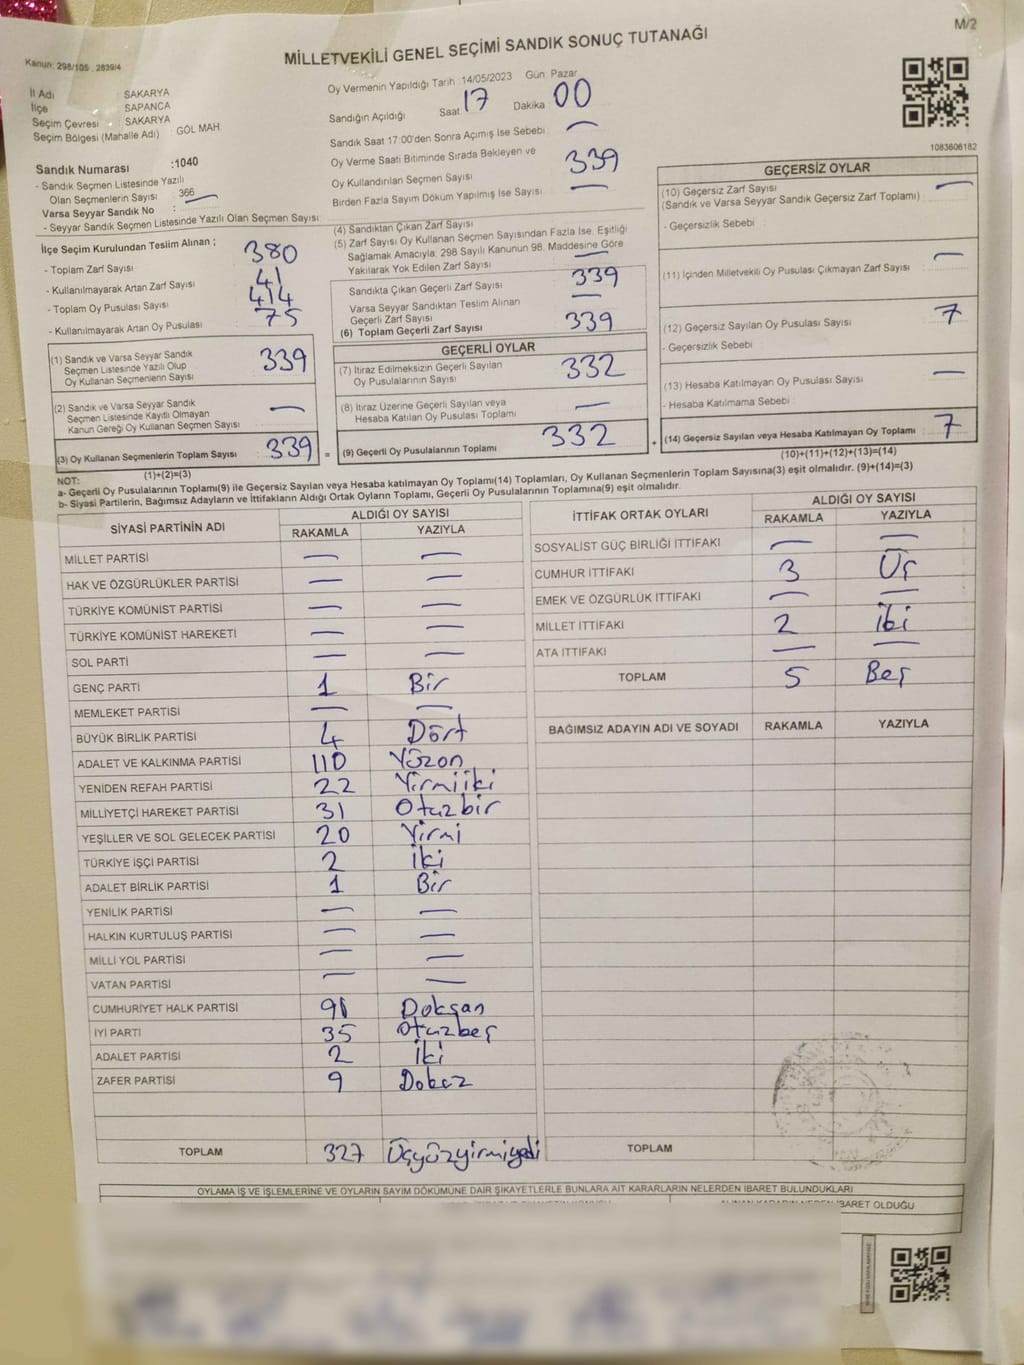 M/2
MİLLETVEKİLİ GENEL SEÇİMİ SANDIK SONUÇ TUTANAĞI
Kanun: 298/105 , 2839/4
İl Adı : SAKARYA
İlçe : SAPANCA
Seçim Çevresi : SAKARYA
Seçim Bölgesi (Mahalle Adı) : GÖL MAH.
Oy Vermenin Yapıldığı Tarih :14/05/2023 Gün: Pazar
Sandığın Açıldığı Saat 17 Dakika 00
Sandık Saat 17:00'den Sonra Açımış İse Sebebi : —
Oy Verme Saati Bitiminde Sırada Bekleyen ve
Oy Kullandırılan Seçmen Sayısı 339
Birden Fazla Sayım Döküm Yapılmış İse Sayısı —
1083606182
Sandık Numarası :1040
- Sandık Seçmen Listesinde Yazılı
Olan Seçmenlerin Sayısı : 366
Varsa Seyyar Sandık No : —
- Seyyar Sandık Seçmen Listesinde Yazılı Olan Seçmen Sayısı :
İlçe Seçim Kurulundan Teslim Alınan ;
- Toplam Zarf Sayısı : 380
- Kullanılmayarak Artan Zarf Sayısı : 41
- Toplam Oy Pusulası Sayısı : 414
- Kullanılmayarak Artan Oy Pusulası : 75
(1) Sandık ve Varsa Seyyar Sandık
Seçmen Listesinde Yazılı Olup
Oy Kullanan Seçmenlerin Sayısı : 339
(2) Sandık ve Varsa Seyyar Sandık
Seçmen Listesinde Kayıtlı Olmayan
Kanun Gereği Oy Kullanan Seçmen Sayısı : —
(3) Oy Kullanan Seçmenlerin Toplam Sayısı : 339
(1)+(2)=(3)
(4) Sandıktan Çıkan Zarf Sayısı
(5) Zarf Sayısı Oy Kullanan Seçmen Sayısından Fazla İse, Eşitliği
Sağlamak Amacıyla, 298 Sayılı Kanunun 98. Maddesine Göre
Yakılarak Yok Edilen Zarf Sayısı —
Sandıkta Çıkan Geçerli Zarf Sayısı 339
Varsa Seyyar Sandıktan Teslim Alınan
Geçerli Zarf Sayısı —
(6) Toplam Geçerli Zarf Sayısı 339
GEÇERLİ OYLAR
(7) İtiraz Edilmeksizin Geçerli Sayılan
Oy Pusulalarının Sayısı 332
(8) İtiraz Üzerine Geçerli Sayılan veya
Hesaba Katılan Oy Pusulası Toplamı —
= (9) Geçerli Oy Pusulalarının Toplamı 332
GEÇERSİZ OYLAR
(10) Geçersiz Zarf Sayısı —
(Sandık ve Varsa Seyyar Sandık Geçersiz Zarf Toplamı)
- Geçersizlik Sebebi :
(11) İçinden Milletvekili Oy Pusulası Çıkmayan Zarf Sayısı —
(12) Geçersiz Sayılan Oy Pusulası Sayısı : 7
- Geçersizlik Sebebi :
(13) Hesaba Katılmayan Oy Pusulası Sayısı : —
- Hesaba Katılmama Sebebi :
+ (14) Geçersiz Sayılan veya Hesaba Katılmayan Oy Toplamı : 7
(10)+(11)+(12)+(13)=(14)
NOT:
a- Geçerli Oy Pusulalarının Toplamı(9) ile Geçersiz Sayılan veya Hesaba katılmayan Oy Toplamı(14) Toplamları, Oy Kullanan Seçmenlerin Toplam Sayısına(3) eşit olmalıdır. (9)+(14)=(3)
b- Siyasi Partilerin, Bağımsız Adayların ve İttifakların Aldığı Ortak Oyların Toplamı, Geçerli Oy Pusulalarının Toplamına(9) eşit olmalıdır.
SİYASİ PARTİNİN ADI ALDIĞI OY SAYISI
RAKAMLA YAZIYLA
MİLLET PARTİSİ — —
HAK VE ÖZGÜRLÜKLER PARTİSİ — —
TÜRKİYE KOMÜNİST PARTİSİ — —
TÜRKİYE KOMÜNİST HAREKETİ — —
SOL PARTİ — —
GENÇ PARTİ 1 Bir
MEMLEKET PARTİSİ — —
BÜYÜK BİRLİK PARTİSİ 4 Dört
ADALET VE KALKINMA PARTİSİ 110 Yüzon
YENİDEN REFAH PARTİSİ 22 Yirmiiki
MİLLİYETÇİ HAREKET PARTİSİ 31 Otuzbir
YEŞİLLER VE SOL GELECEK PARTİSİ 20 Yirmi
TÜRKİYE İŞÇİ PARTİSİ 2 İki
ADALET BİRLİK PARTİSİ 1 Bir
YENİLİK PARTİSİ — —
HALKIN KURTULUŞ PARTİSİ — —
MİLLİ YOL PARTİSİ — —
VATAN PARTİSİ — —
CUMHURİYET HALK PARTİSİ Doksan
İYİ PARTİ 35 Otuzbeş
ADALET PARTİSİ 2 İki
ZAFER PARTİSİ 9 Dokuz
TOPLAM 327 Üçyüzyirmiyedi
İTTİFAK ORTAK OYLARI ALDIĞI OY SAYISI
RAKAMLA YAZIYLA
SOSYALİST GÜÇ BİRLİĞİ İTTİFAKI — —
CUMHUR İTTİFAKI 3 Üç
EMEK VE ÖZGÜRLÜK İTTİFAKI — —
MİLLET İTTİFAKI 2 iki
ATA İTTİFAKI — —
TOPLAM 5 Beş
BAĞIMSIZ ADAYIN ADI VE SOYADI RAKAMLA YAZIYLA
TOPLAM
OYLAMA İŞ VE İŞLEMLERİNE VE OYLARIN SAYIM DÖKÜMÜNE DAİR ŞİKAYETLERLE BUNLARA AİT KARARLARIN NELERDEN İBARET BULUNDUKLARI
İBARET OLDUĞU